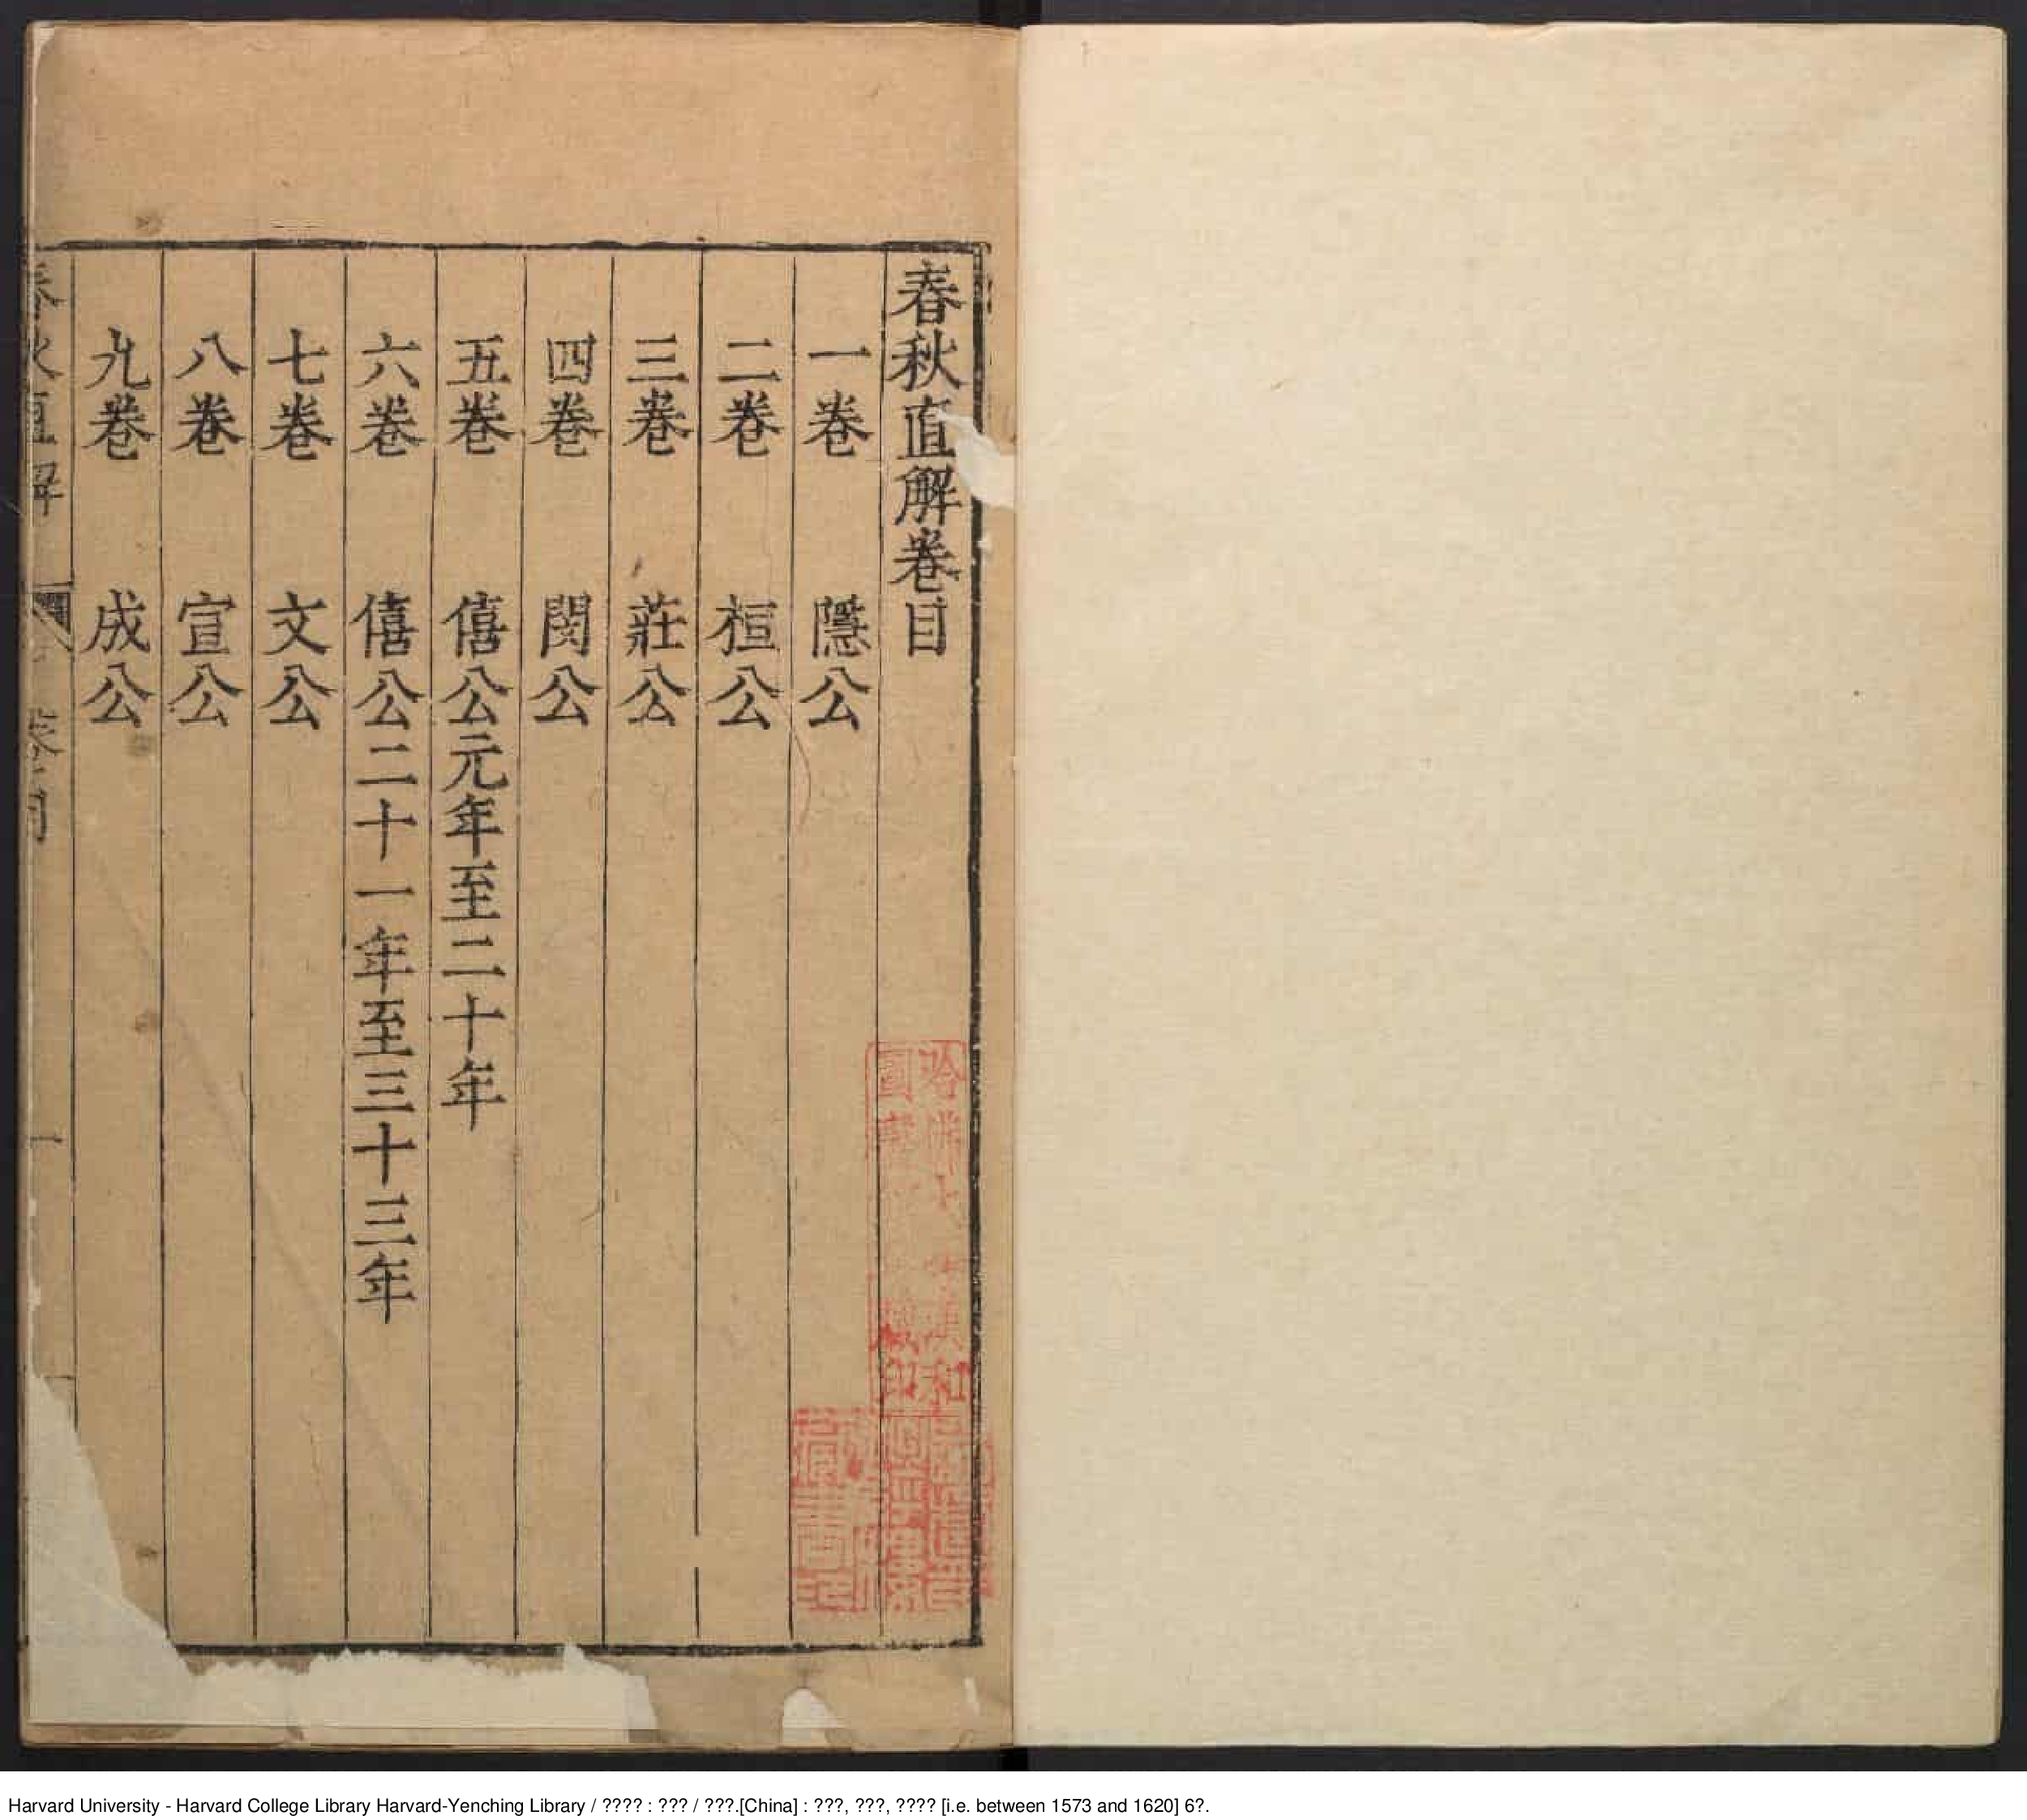 春秋直解卷目
一卷 隱公
二卷 桓公
三卷 莊公
四卷 閔公
五卷 僖公元年至二十年
六卷 僖公二十一年至三十三年
七卷 文公
八卷 宣公
九卷 成公
春秋直解 卷目 一
哈佛大 漢和
圖書 藏印
Harvard University - Harvard College Library Harvard-Yenching Library / ???? : ??? / ???.[China] : ???, ???, ???? [i.e. between 1573 and 1620] 6?.